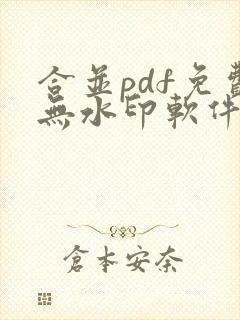 合並pdf免費
無水印軟件
倉本安奈